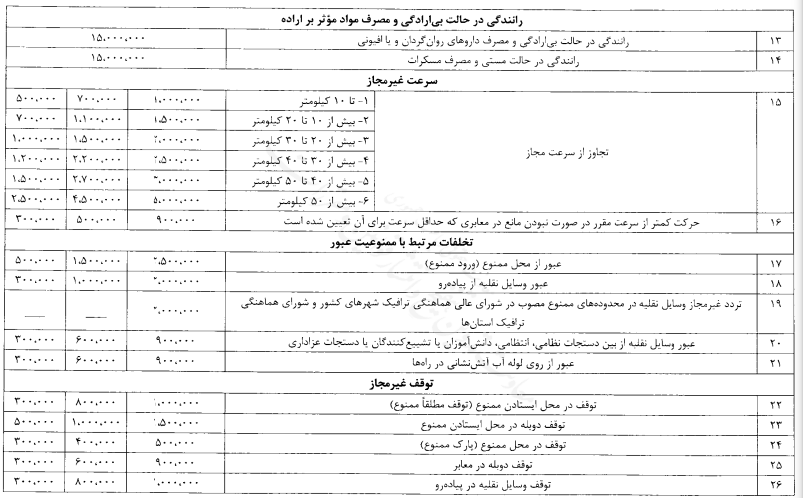 رانندگی در حالت بی‌ارادگی و مصرف مواد مؤثر بر اراده
۱۳ رانندگی در حالت بی‌ارادگی و مصرف داروهای روان‌گردان و یا افیونی ۱۵،۰۰۰،۰۰۰
۱۴ رانندگی در حالت مستی و مصرف مسکرات ۱۵،۰۰۰،۰۰۰
سرعت غیرمجاز
۱۵ تجاوز از سرعت مجاز
۱- تا ۱۰ کیلومتر ۱،۰۰۰،۰۰۰ ۷۰۰،۰۰۰ ۵۰۰،۰۰۰
۲- بیش از ۱۰ تا ۲۰ کیلومتر ۱،۵۰۰،۰۰۰ ۱،۱۰۰،۰۰۰ ۷۰۰،۰۰۰
۳- بیش از ۲۰ تا ۳۰ کیلومتر ۲،۰۰۰،۰۰۰ ۱،۵۰۰،۰۰۰ ۱،۰۰۰،۰۰۰
۴- بیش از ۳۰ تا ۴۰ کیلومتر ۲،۵۰۰،۰۰۰ ۲،۲۰۰،۰۰۰ ۱،۲۰۰،۰۰۰
۵- بیش از ۴۰ تا ۵۰ کیلومتر ۲،۷۰۰،۰۰۰ ۱،۵۰۰،۰۰۰
۶- بیش از ۵۰ کیلومتر ۵،۰۰۰،۰۰۰ ۴،۵۰۰،۰۰۰ ۲،۵۰۰،۰۰۰
۱۶ حرکت کمتر از سرعت مقرر در صورت نبودن مانع در معابری که حداقل سرعت برای آن تعیین شده است ۹۰۰،۰۰۰ ۵۰۰،۰۰۰ ۳۰۰،۰۰۰
تخلفات مرتبط با ممنوعیت عبور
۱۷ عبور از محل ممنوع (ورود ممنوع) ۲،۵۰۰،۰۰۰ ۱،۵۰۰،۰۰۰ ۵۰۰،۰۰۰
۱۸ عبور وسایل نقلیه از پیاده‌رو ۲،۰۰۰،۰۰۰ ۱،۰۰۰،۰۰۰ ۳۰۰،۰۰۰
۱۹ تردد غیرمجاز وسایل نقلیه در محدوده‌های ممنوع مصوب در شورای عالی هماهنگی ترافیک شهرهای کشور و شورای هماهنگی ۲،۰۰۰،۰۰۰ — —
ترافیک استان‌ها
۲۰ عبور وسایل نقلیه از بین دستجات نظامی، انتظامی، دانش‌آموزان یا تشییع‌کنندگان یا دستجات عزاداری ۹۰۰،۰۰۰ ۶۰۰،۰۰۰ ۳۰۰،۰۰۰
۲۱ عبور از روی لوله آب آتش‌نشانی در راه‌ها ۹۰۰،۰۰۰ ۶۰۰،۰۰۰ ۳۰۰،۰۰۰
توقف غیرمجاز
۲۲ توقف در محل ایستادن ممنوع (توقف مطلقاً ممنوع) ۱،۰۰۰،۰۰۰ ۸۰۰،۰۰۰ ۳۰۰،۰۰۰
۲۳ توقف دوبله در محل ایستادن ممنوع ۱،۵۰۰،۰۰۰ ۱،۰۰۰،۰۰۰ ۵۰۰،۰۰۰
۲۴ توقف در محل ممنوع (پارک ممنوع) ۵۰۰،۰۰۰ ۴۰۰،۰۰۰ ۳۰۰،۰۰۰
۲۵ توقف دوبله در معابر ۹۰۰،۰۰۰ ۶۰۰،۰۰۰ ۳۰۰،۰۰۰
۲۶ توقف وسایل نقلیه در پیاده‌رو ۱،۰۰۰،۰۰۰ ۸۰۰،۰۰۰ ۳۰۰،۰۰۰